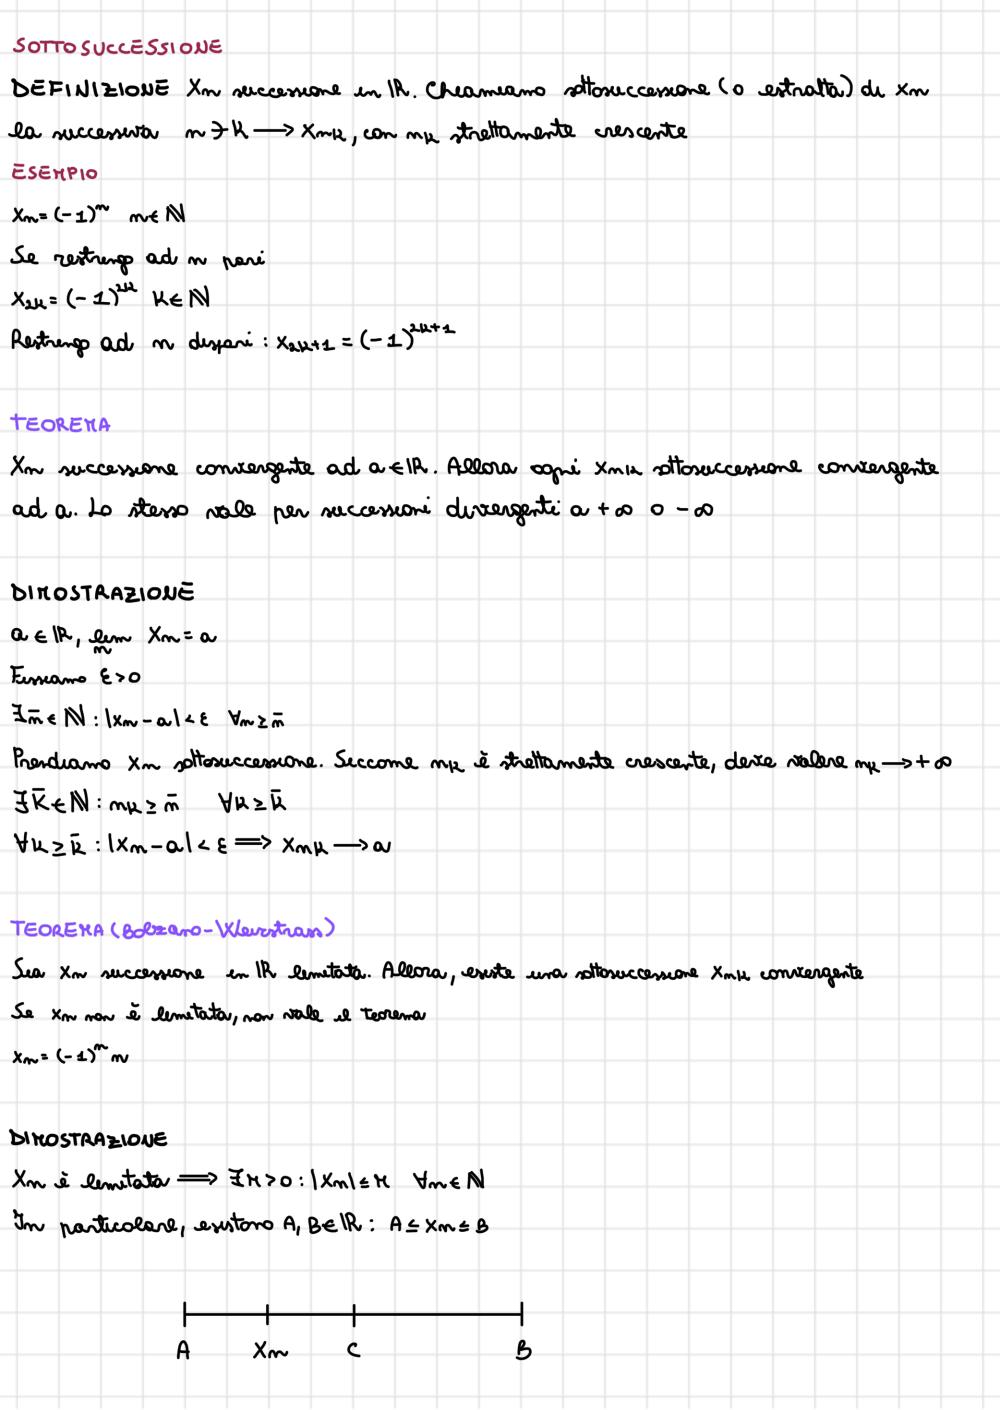 SOTTOSUCCESSIONE
DEFINIZIONE Xn successione in ℝ. Chiamiamo sottosuccessione (o estratta) di xn
la successiva n ∋ K ⟶ Xnk, con nk strettamente crescente
ESEMPIO
Xn = (-1)^n n ∈ ℕ
Se restringo ad n pari
X2k = (-1)^2k K ∈ ℕ
Restringo ad n dispari : X2k+1 = (-1)^2k+1
TEOREMA
Xn successione convergente ad a ∈ ℝ. Allora ogni Xnk sottosuccessione convergente
ad a. Lo stesso vale per successioni divergenti a +∞ o -∞
DIMOSTRAZIONE
a ∈ ℝ, lim Xn = a
n
Fissiamo ε > 0
∃n̄ ∈ ℕ : |xn - a| < ε ∀n ≥ n̄
Prendiamo Xn sottosuccessione. Siccome nk è strettamente crescente, deve valere nk ⟶ +∞
∃k̄ ∈ ℕ : nk ≥ n̄ ∀k ≥ k̄
∀k ≥ k̄ : |Xn - a| < ε ⟹ Xnk ⟶ a
TEOREMA (Bolzano-Weirstrass)
Sia Xn successione in ℝ limitata. Allora, esiste una sottosuccessione Xnk convergente
Se xn non è limitata, non vale il teorema
xn = (-1)^n n
DIMOSTRAZIONE
Xn è limitata ⟹ ∃M > 0 : |Xn| ≤ M ∀n ∈ ℕ
In particolare, esistono A, B ∈ ℝ : A ≤ Xn ≤ B
A Xn C B